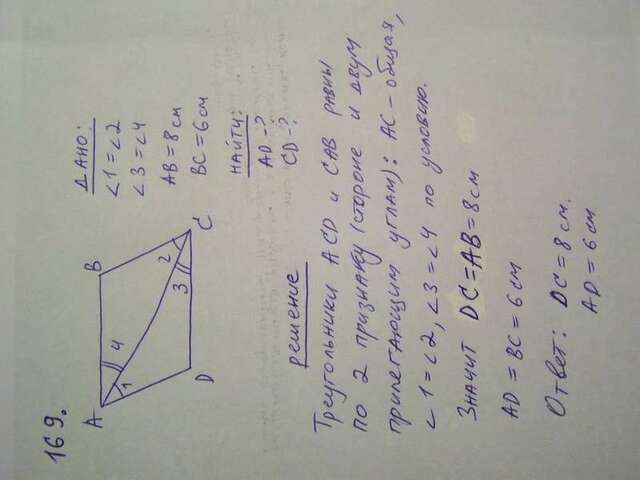 169.
A
B
C
D
1
4
2
3
ДАНО:
∠1=∠2
∠3=∠4
AB=8см
BC=6см
НАЙТИ:
AD-?
CD-?
решение
Треугольники ACD и CAB равны
по 2 признаку (стороне и двум
прилегающим углам): AC-общая,
∠1=∠2, ∠3=∠4 по условию.
Значит DC=AB=8см
AD=BC=6см
Ответ: DC=8см.
AD=6см